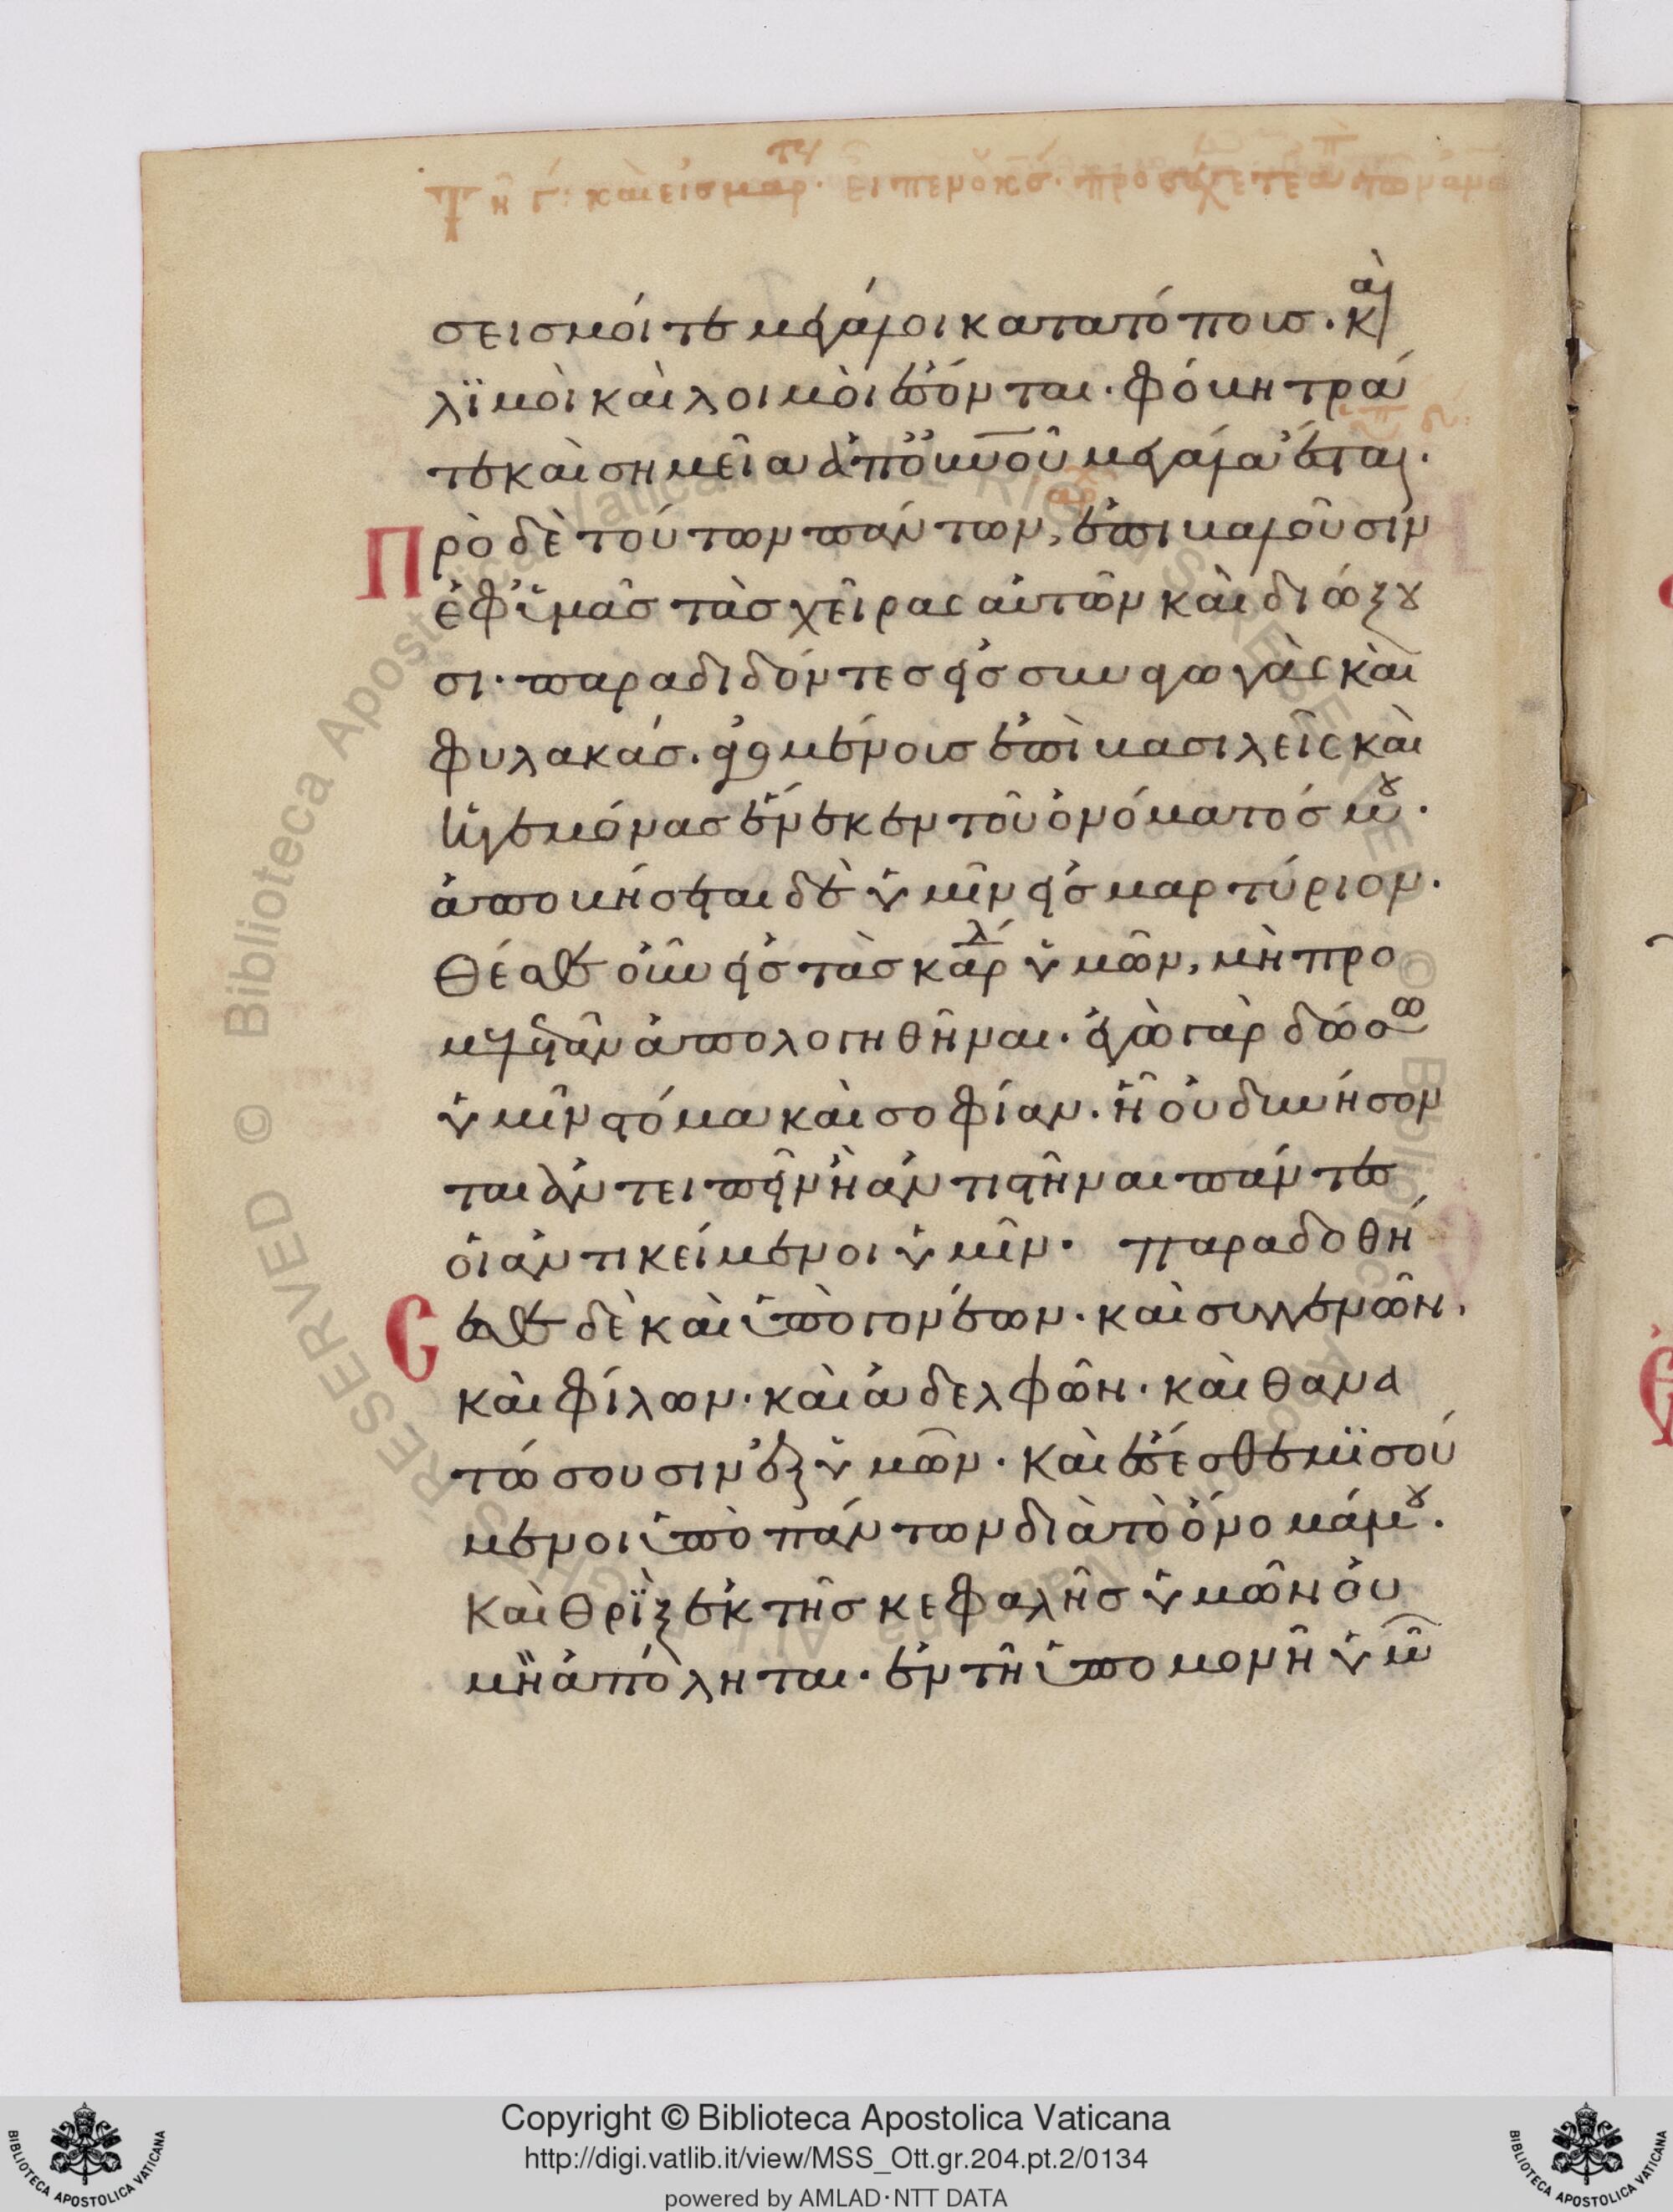 σεισμοί τε μεγάλοι κατα τόποις. καὶ
λϊμοὶ καὶ λοιμοὶ ἔσόνται. φόβητρά
τε καὶ σημεῖα ἀπὸ οὐνοῦ μεγάλα ἔσται.
Πρὸ δὲ τούτων πάντων, ἐπιβαλοῦσιν
ἐφ ὑμᾶσ τὰσ χεῖρας αὐτῶν καὶ διώξου
σι. παραδιδόντεσ εἰσ συναγωγὰς καὶ
φυλακάσ. ἀγομένοισ ἐπὶ βασιλεῖς καὶ
ἡγεμόνασ ἕνεκεν τοῦ ὀνόματόσ μου.
ἀποβήσεται δὲ ὑμῖν εἰσ μαρτύριον.
Θέσθε οὖν εἰσ τὰσ καρδ ὑμῶν, μὴ προ
μελετᾶν ἀπολογηθῆναι. ἐγὼ γὰρ δώσω
ὑμῖν στόμα καὶ σοφίαν. ἧ οὐ δυνήσον
ται ἀντειπεῖν ἢ ἀντιστῆναι πάντες
οἱ ἀντικείμενοι ὑμῖν. παραδοθή
σεσθε δὲ καὶ ὑπὸ γονέων. καὶ συγγενῶν.
καὶ φίλων. καὶ ἀδελφῶν. καὶ θανα
τώσουσιν ἐξ ὑμῶν. καὶ ἔσέσθε μϊσού
μενοι ὑπὸ πάντων διὰ τὸ ὄνομά μου.
Καὶ θρὶξ ἐκ τῆσ κεφαλῆσ ὑμῶν οὐ
μὴ ἀπόληται. ἐν τῆ ὑπομονῆ ὑμῶ
Copyright © Biblioteca Apostolica Vaticana
http://digi.vatlib.it/view/MSS_Ott.gr.204.pt.2/0134
powered by AMLAD·NTT DATA
BIBLIOTECA APOSTOLICA VATICANA
BIBLIOTECA APOSTOLICA VATICANA